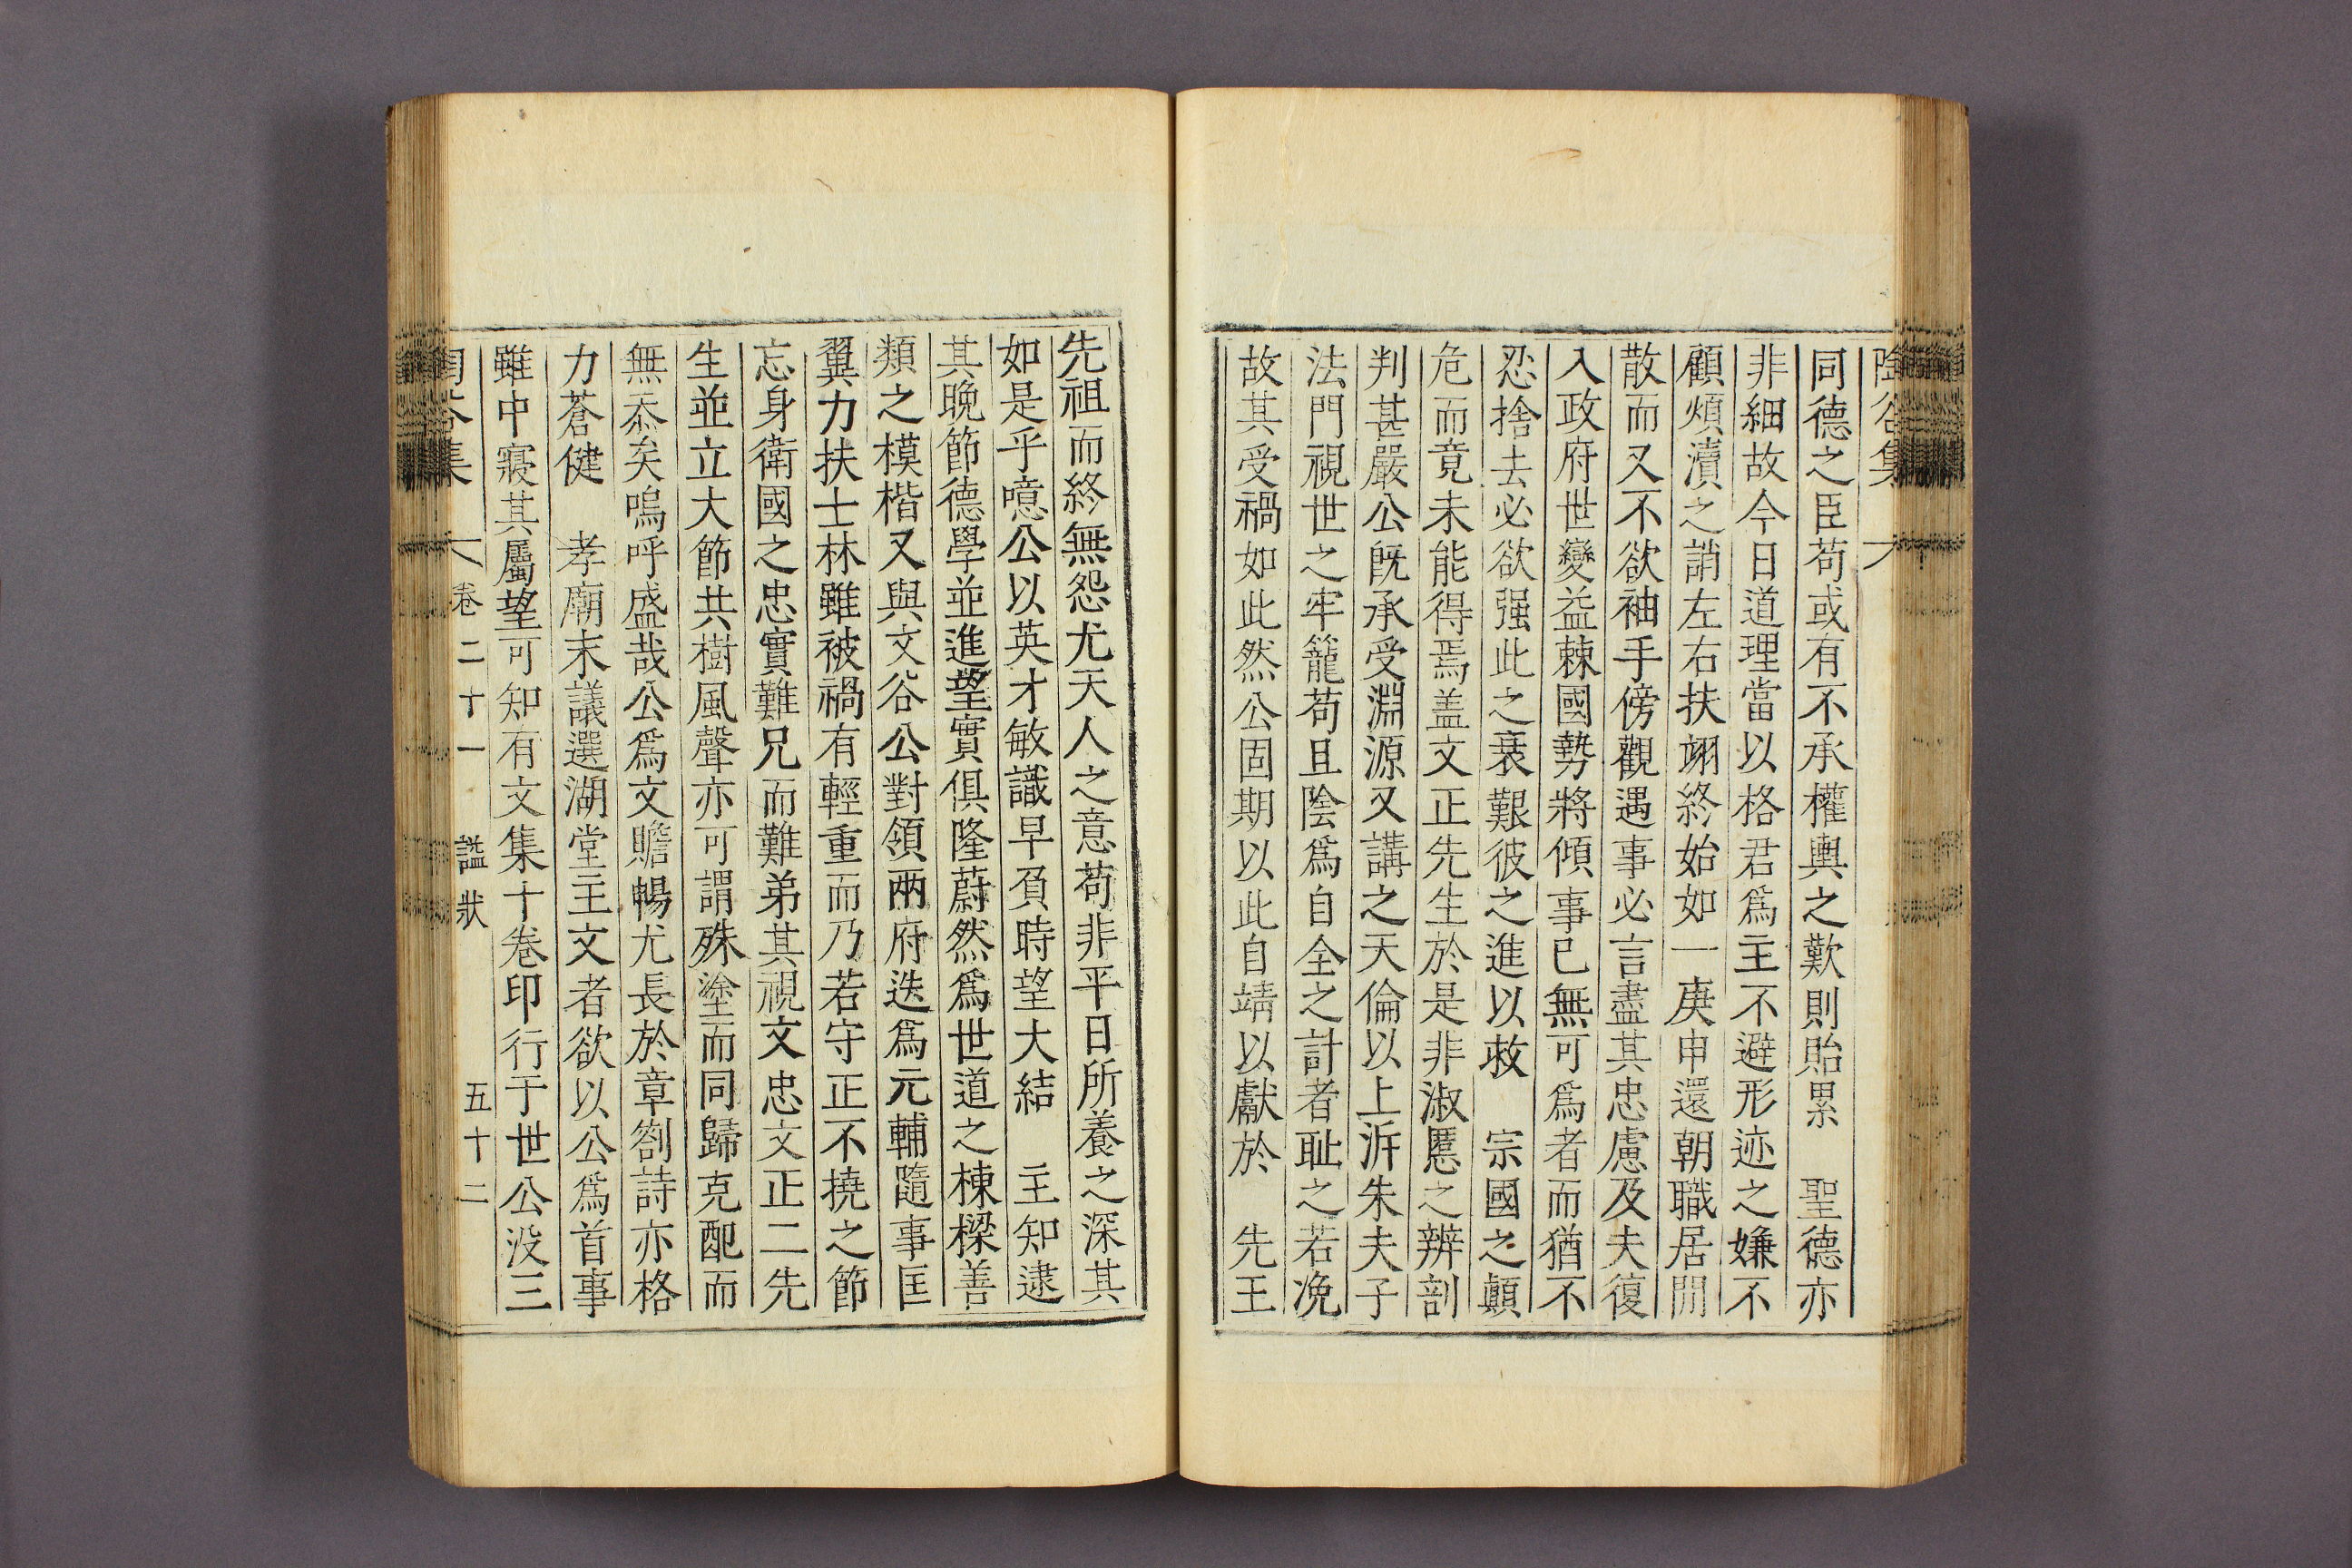 陶谷集
同德之臣苟或有不承權輿之歎則貽累　聖德亦
非細故今日道理當以格君爲主不避形迹之嫌不
顧煩瀆之誚左右扶翊終始如一庚申還朝職居閒
散而又不欲袖手傍觀遇事必言盡其忠慮及夫復
入政府世變益棘國勢將傾事已無可爲者而猶不
忍捨去必欲强此之衰艱彼之進以救　宗國之顚
危而竟未能得焉盖文正先生於是非淑慝之辨剖
判甚嚴公旣承受淵源又講之天倫以上泝朱夫子
法門視世之牢籠苟且陰爲自全之計者耻之若浼
故其受禍如此然公固期以此自靖以獻於　先王
先祖而終無怨尤天人之意苟非平日所養之深其
如是乎噫公以英才敏識早負時望大結　主知逮
其晩節德學並進望實俱隆蔚然爲世道之棟樑善
類之模楷又與文谷公對領兩府迭爲元輔隨事匡
翼力扶士林雖被禍有輕重而乃若守正不撓之節
忘身衛國之忠實難兄而難弟其視文忠文正二先
生並立大節共樹風聲亦可謂殊塗而同歸克配而
無忝矣嗚呼盛哉公爲文贍暢尤長於章劄詩亦格
力蒼健　孝廟末議選湖堂主文者欲以公爲首事
雖中寢其屬望可知有文集十卷印行于世公没三
陶谷集　卷二十一　諡狀　五十二